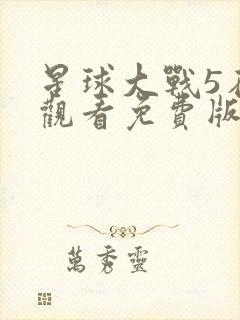 星球大戰5在
觀看免費版
萬秀靈